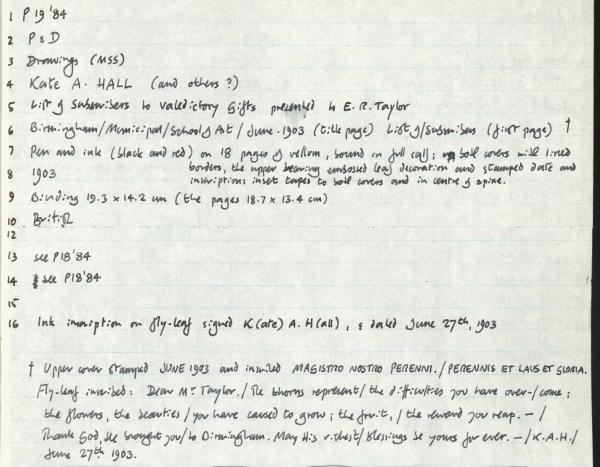 1 P 19 '84
2 P & D
3 Drawings (MSS)
4 Kate A. HALL (and others?)
5 List of Subscribers to Valedictory Gifts presented to E. R. Taylor
6 Birmingham/Municipal/School of Art/June. 1903 (title page) List of/Subscribers (first page) †
7 Pen and ink (black and red) on 18 pages of vellum, bound in full calf; both covers with lined
8 1903 borders, the upper bearing embossed leaf decoration and stamped date and
inscription; inset tapes to both covers and in centre of spine.
9 Binding 19.3 x 14.2 cm (the pages 18.7 x 13.4 cm)
10 British
12
13 see P18'84
14 see P18'84
15
16 Ink inscription on fly-leaf signed K(ate) A. H(all), & dated June 27th, 1903
† Upper cover stamped JUNE 1903 and inscribed MAGISTRO NOSTRO PERENNI./PERENNIS ET LAUS ET GLORIA.
Fly-leaf inscribed: Dear Mr Taylor./The thorns represent/the difficulties you have over-/come;
the flowers, the beauties/you have caused to grow; the fruit,/the reward you reap. —/
Thank God, He brought you/to Birmingham. May His richest/blessings be yours for ever. —/K.A.H./
June 27th 1903.